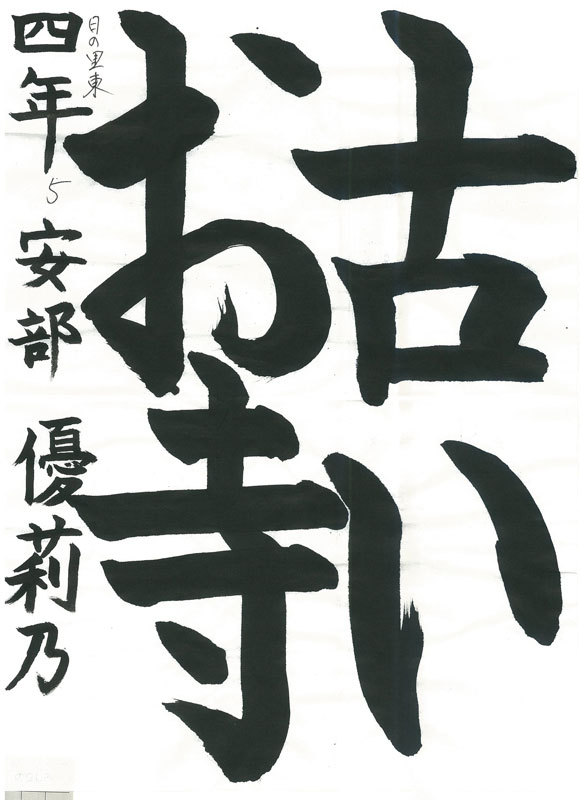 古い
お寺
日の里東
四年5 安部 優莉乃